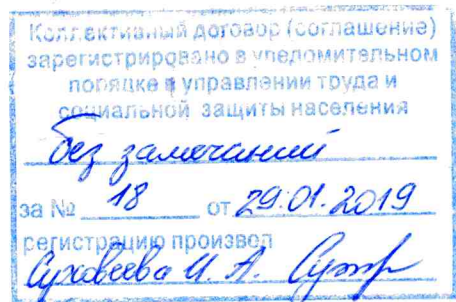 Коллективный договор (соглашение)
зарегистрировано в уведомительном
порядке в управлении труда и
социальной защиты населения
без замечаний
за № 18 от 29.01.2019
регистрацию произвел
Суховеева И. А.